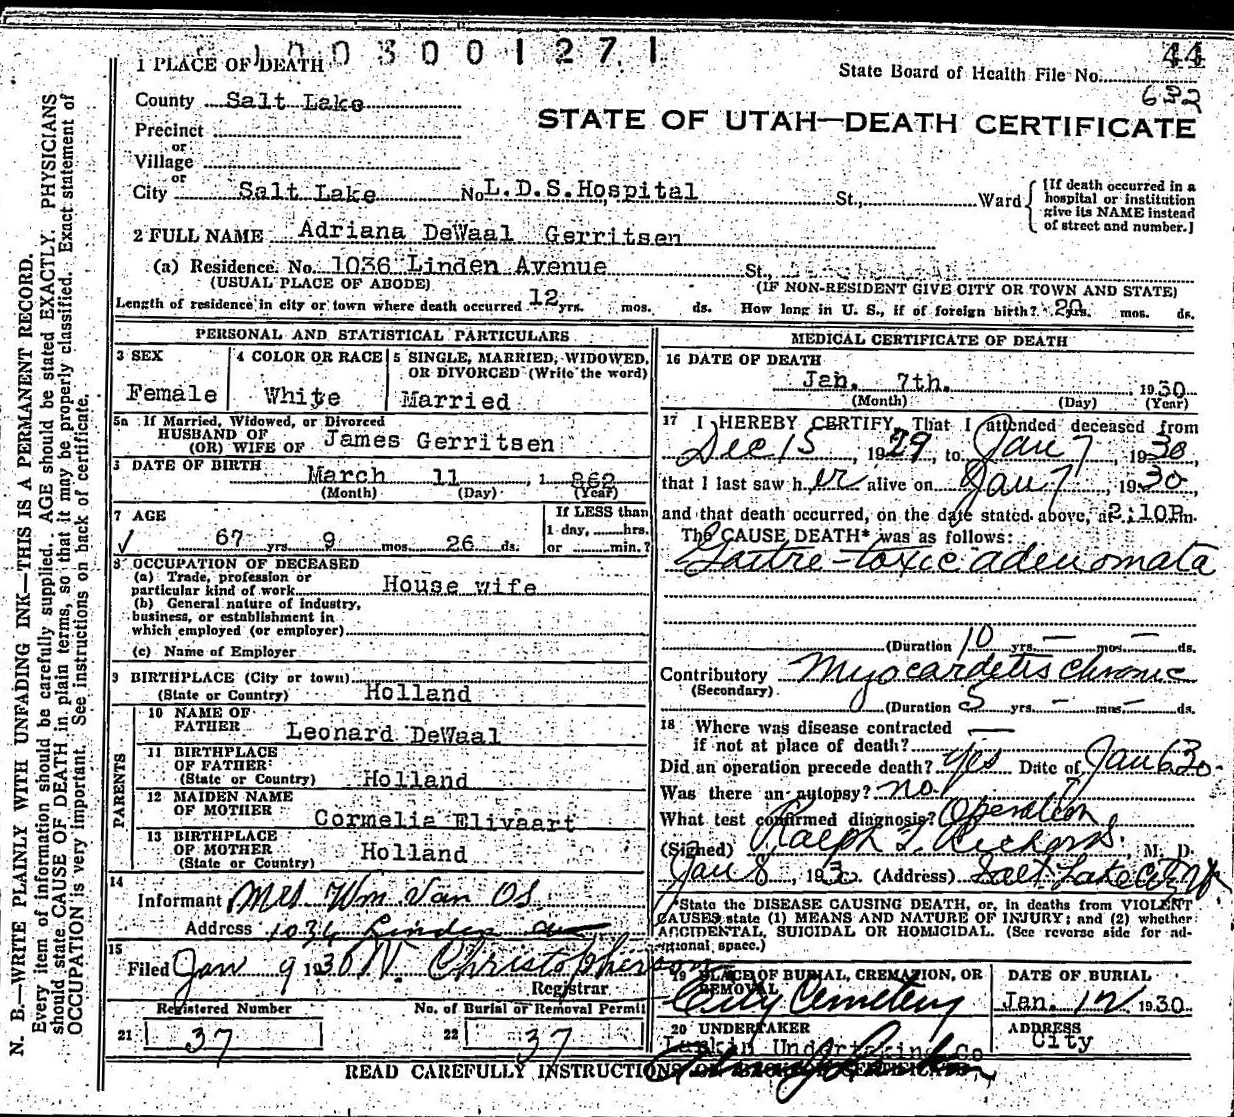 1003001271
44
1 PLACE OF DEATH
State Board of Health File No.
632
County Salt Lake
STATE OF UTAH—DEATH CERTIFICATE
Precinct
or
Village
or
City Salt Lake No. L.D.S. Hospital St., Ward
[If death occurred in a hospital or institution give its NAME instead of street and number.]
2 FULL NAME Adriana DeWaal Gerritsen
(a) Residence. No. 1036 Linden Avenue St.,
(USUAL PLACE OF ABODE) (IF NON-RESIDENT GIVE CITY OR TOWN AND STATE)
Length of residence in city or town where death occurred 12 yrs. mos. ds. How long in U. S., if of foreign birth? 20 yrs. mos. ds.
PERSONAL AND STATISTICAL PARTICULARS
3 SEX
Female
4 COLOR OR RACE
White
5 SINGLE, MARRIED, WIDOWED,
OR DIVORCED (Write the word)
Married
5a If Married, Widowed, or Divorced
HUSBAND OF
(OR) WIFE OF James Gerritsen
DATE OF BIRTH
March 11, 1862
(Month) (Day) (Year)
7 AGE
67 yrs. 9 mos. 26 ds.
If LESS than
1 day, hrs.
or min.?
8 OCCUPATION OF DECEASED
(a) Trade, profession or
particular kind of work House wife
(b) General nature of industry,
business, or establishment in
which employed (or employer)
(c) Name of Employer
9 BIRTHPLACE (City or town)
(State or Country) Holland
PARENTS
10 NAME OF
FATHER Leonard DeWaal
11 BIRTHPLACE
OF FATHER
(State or Country) Holland
12 MAIDEN NAME
OF MOTHER Cormelia Elivaart
13 BIRTHPLACE
OF MOTHER
(State or Country) Holland
14
Informant Mrs Wm Van Os
Address 1036 Linden ave
15
Filed Jan 9 1930 W. Christopherson
Registrar
Registered Number
21 37
No. of Burial or Removal Permit
22 37
MEDICAL CERTIFICATE OF DEATH
16 DATE OF DEATH
Jan. 7th. , 1930
(Month) (Day) (Year)
17 I HEREBY CERTIFY, That I attended deceased from
Dec 15, 1929, to Jan 7, 1930,
that I last saw her alive on Jan 7, 1930,
and that death occurred, on the date stated above, at 2:10P m.
The CAUSE DEATH* was as follows:
Goitre-toxic adenomata
(Duration 10 yrs. — mos. — ds.
Contributory Myocardetis chronic
(Secondary)
(Duration 5 yrs. — mos. — ds.
18 Where was disease contracted
if not at place of death? —
Did an operation precede death? yes Date of Jan 6 30
Was there an autopsy? no
What test confirmed diagnosis? Operation
(Signed) Ralph T. Richards, M. D.
Jan 8, 1930 (Address) Salt Lake City Ut
*State the DISEASE CAUSING DEATH, or, in deaths from VIOLENT
CAUSES state (1) MEANS AND NATURE OF INJURY; and (2) whether
ACCIDENTAL, SUICIDAL OR HOMICIDAL. (See reverse side for ad-
ditional space.)
19 PLACE OF BURIAL, CREMATION, OR
REMOVAL
City Cemetery
DATE OF BURIAL
Jan. 12 1930
20 UNDERTAKER
Larkin Undertaking Co
ADDRESS
City
READ CAREFULLY INSTRUCTIONS ON
N. B.—WRITE PLAINLY WITH UNFADING INK—THIS IS A PERMANENT RECORD.
Every item of information should be carefully supplied. AGE should be stated EXACTLY. PHYSICIANS
should state CAUSE OF DEATH in plain terms, so that it may be properly classified. Exact statement of
OCCUPATION is very important. See instructions on back of certificate.